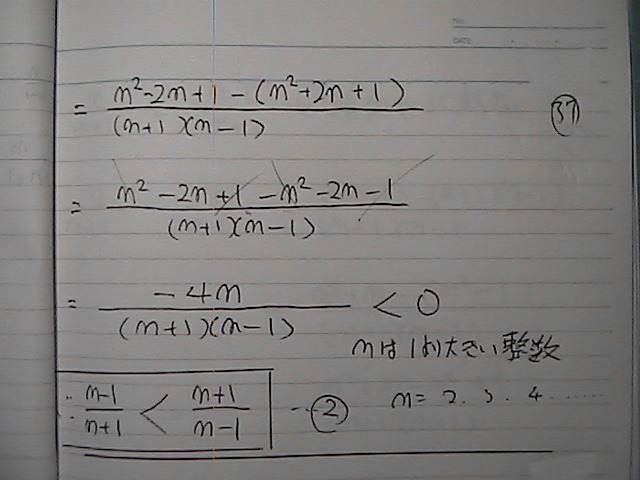 NO.
DATE
= (n²-2n+1-(n²+2n+1))/((n+1)(n-1)) ㊲
= (n²-2n+1-n²-2n-1)/((n+1)(n-1))
= (-4n)/((n+1)(n-1)) < 0
nは1より大きい整数
n = 2. 3. 4 ......
∴ (n-1)/(n+1) < (n+1)/(n-1) --- ②